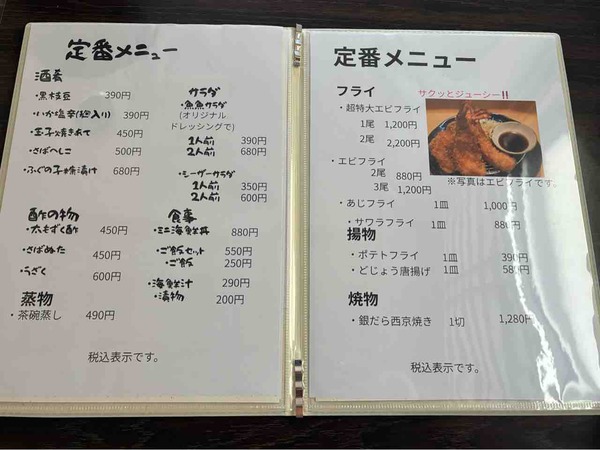 定番メニュー
酒肴
・黒枝豆 390円
・いか塩辛(麹入り) 390円
・玉子焼きあて 450円
・さばへしこ 500円
・ふぐの子糠漬け 680円
酢の物
・太もずく酢 450円
・さばぬた 450円
・うざく 600円
蒸物
・茶碗蒸し 490円
サラダ
・魚魚サラダ
(オリジナル
ドレッシングで)
1人前 390円
2人前 680円
・シーザーサラダ
1人前 350円
2人前 600円
食事
・ミニ海鮮丼 880円
・ご飯セット 550円
・ご飯 250円
・海鮮汁 290円
・漬物 200円
税込表示です。
定番メニュー
フライ サクッとジューシー!!
・超特大エビフライ
1尾 1,200円
2尾 2,200円
・エビフライ
2尾 880円
3尾 1,200円
※写真はエビフライです。
・あじフライ 1皿 1,000円
・サワラフライ 1皿 880円
揚物
・ポテトフライ 1皿 390円
・どじょう唐揚げ 1皿 580円
焼物
・銀だら西京焼き 1切 1,280円
税込表示です。